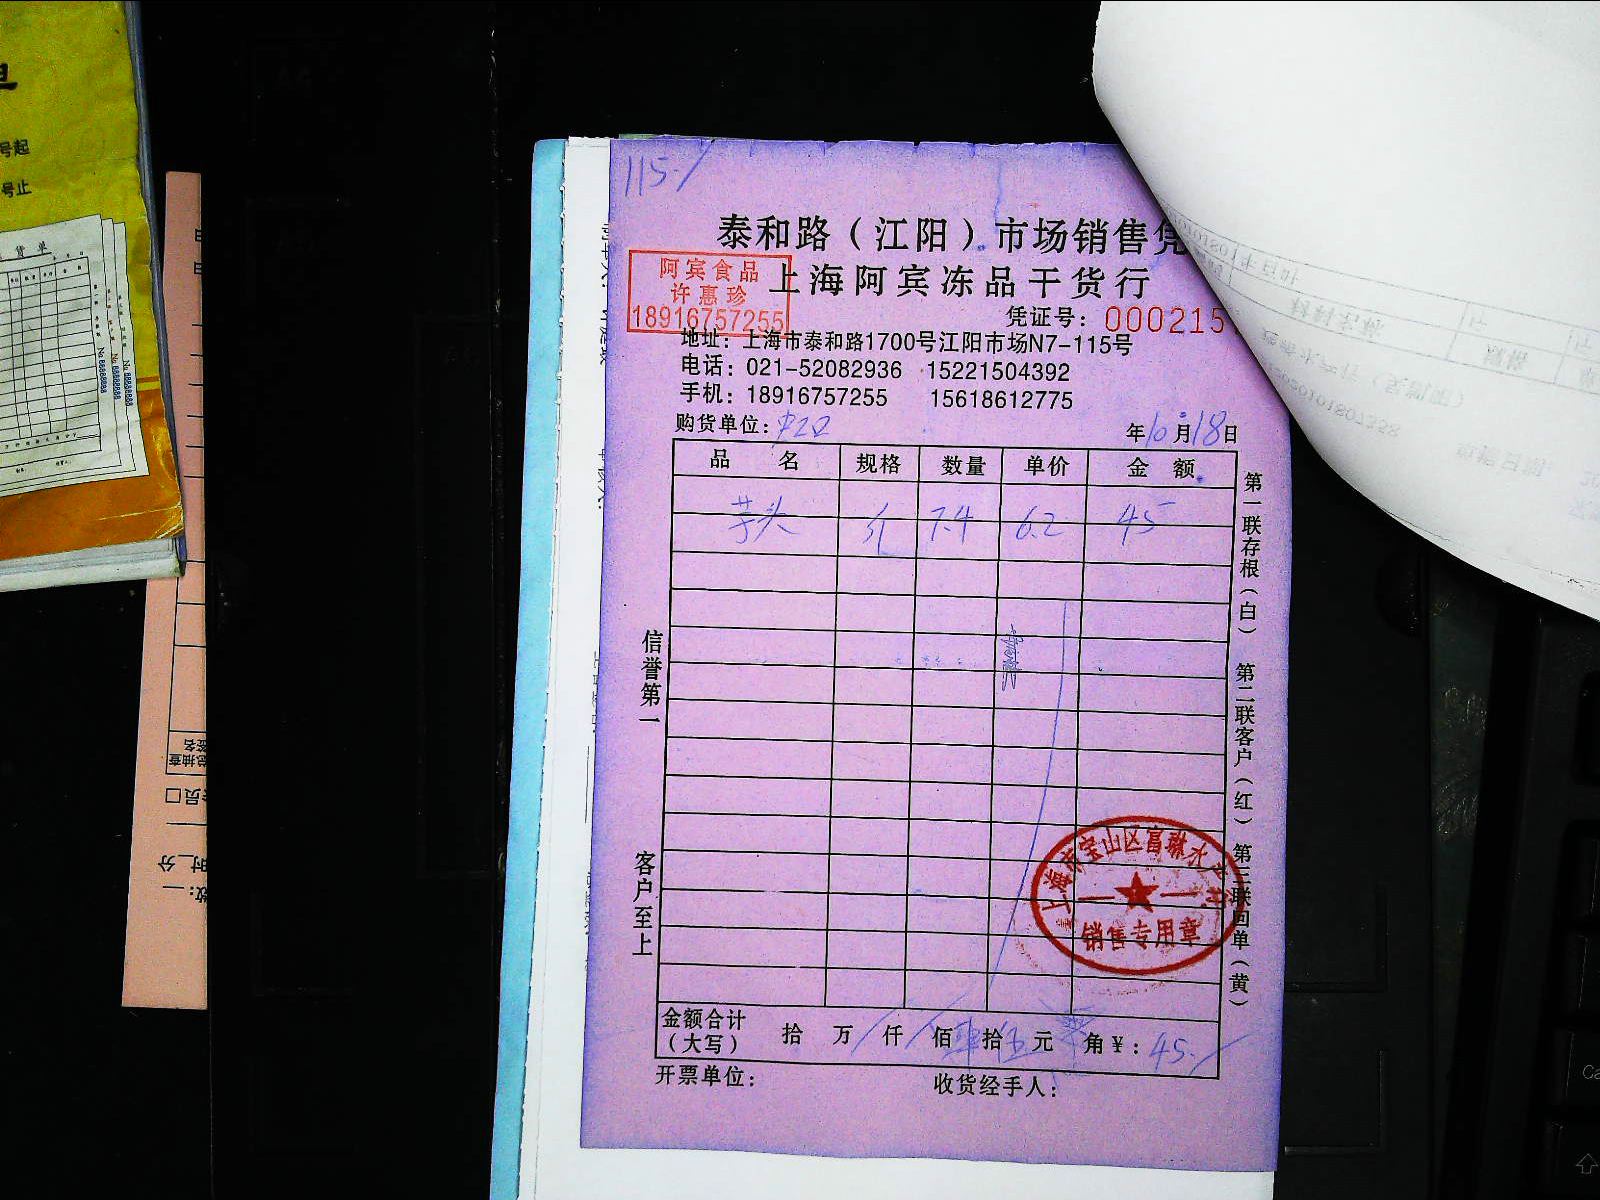 115
泰和路（江阳）市场销售凭
阿宾食品
许惠珍
18916757255
上海阿宾冻品干货行
凭证号：000215
地址：上海市泰和路1700号江阳市场N7-115号
电话：021-52082936 15221504392
手机：18916757255 15618612775
购货单位： 年10月18日
品名 规格 数量 单价 金额
芋头 7.4 6.2 45
第一联存根（白） 第二联客户（红） 第三联回单（黄）
信誉第一
客户至上
上海市宝山区富琳水产
销售专用章
金额合计（大写） 拾 万 仟 佰 肆拾伍元 角¥：45.
开票单位： 收货经手人：
号起
号止
货单
No 88888888
No 88888888
No 88888888